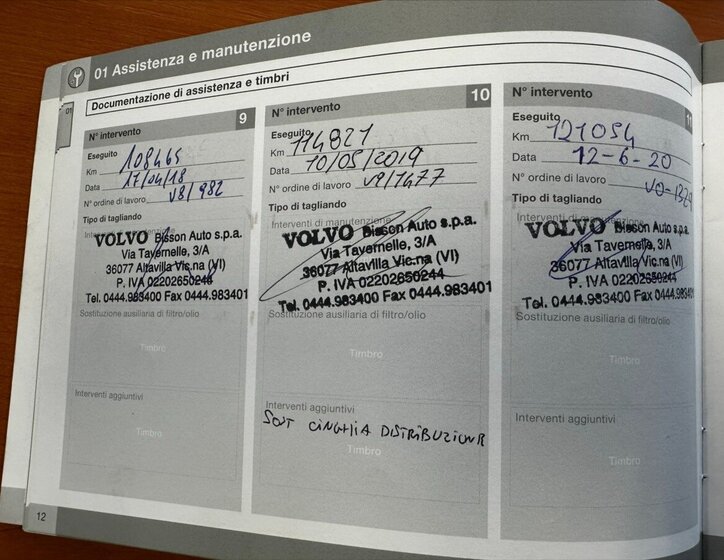 01 Assistenza e manutenzione
01
Documentazione di assistenza e timbri
N° intervento 9
Eseguito
Km 108465
Data 17/04/18
N° ordine di lavoro V8/982
Tipo di tagliando
Interventi di manutenzione
VOLVO Bisson Auto s.p.a.
Via Tavernelle, 3/A
36077 Altavilla Vic.na (VI)
P. IVA 02202650244
Tel. 0444.983400 Fax 0444.983401
Sostituzione ausiliaria di filtro/olio
Timbro
Interventi aggiuntivi
Timbro
N° intervento 10
Eseguito
Km 114821
Data 10/05/2019
N° ordine di lavoro V9/1477
Tipo di tagliando
Interventi di manutenzione
VOLVO Bisson Auto s.p.a.
Via Tavernelle, 3/A
36077 Altavilla Vic.na (VI)
P. IVA 02202650244
Tel. 0444.983400 Fax 0444.983401
Sostituzione ausiliaria di filtro/olio
Timbro
Interventi aggiuntivi
SOST CINGHIA DISTRIBUZIONE
Timbro
N° intervento 11
Eseguito
Km 121054
Data 12-6-20
N° ordine di lavoro
Tipo di tagliando
Interventi di manutenzione
VOLVO Bisson Auto s.p.a.
Via Tavernelle, 3/A
36077 Altavilla Vic.na (VI)
P. IVA 02202650244
Tel. 0444.983400 Fax 0444.983401
Sostituzione ausiliaria di filtro/olio
Timbro
Interventi aggiuntivi
Timbro
12